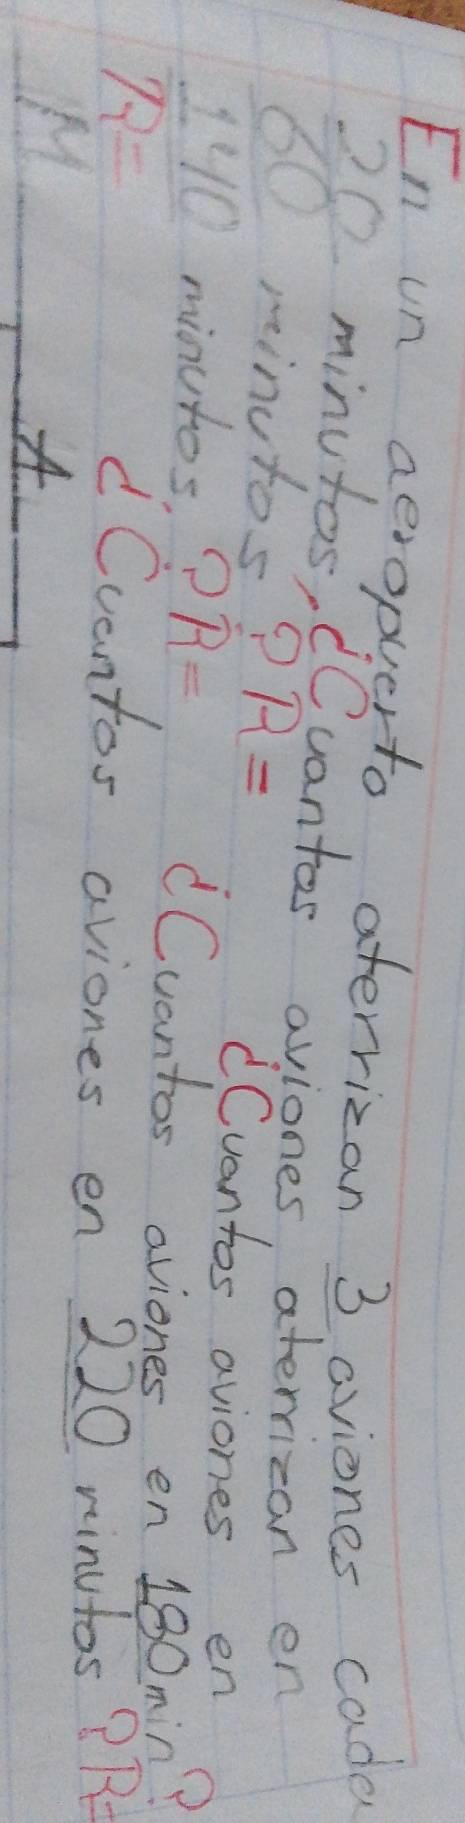 En un aeropuerto aterrizan 3 aviones cada
20 minutos, ¿Cuantos aviones aterrizan en
60 minutos? R= ¿Cuantos aviones en
140 minutos? R= ¿Cuantos aviones en 180 min?
R= ¿Cuantos aviones en 220 minutos? R=
M A